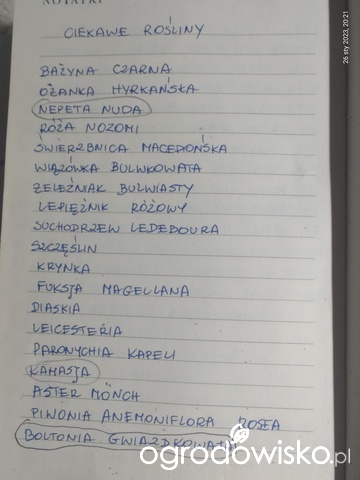 NOTATKI
26 sty 2023, 20:21
CIEKAWE ROŚLINY
BAŻYNA CZARNA
OŻANKA HYRKAŃSKA
NEPETA NUDA
RÓŻA NOZOMI
ŚWIERZBNICA MACEDOŃSKA
WIĄZÓWKA BULWKOWATA
ŻELEŹNIAK BULWIASTY
LEPIĘŻNIK RÓŻOWY
SUCHODRZEW LEDEBOURA
SZCZĘŚLIN
KRYNKA
FUKSJA MAGELLANA
DIASKIA
LEICESTERIA
PARONYCHIA KAPELI
KAMASJA
ASTER MÖNCH
PIWONIA ANEMONIFLORA ROSEA
BOLTONIA GWIAZDKOWATA
ogrodowisko.pl